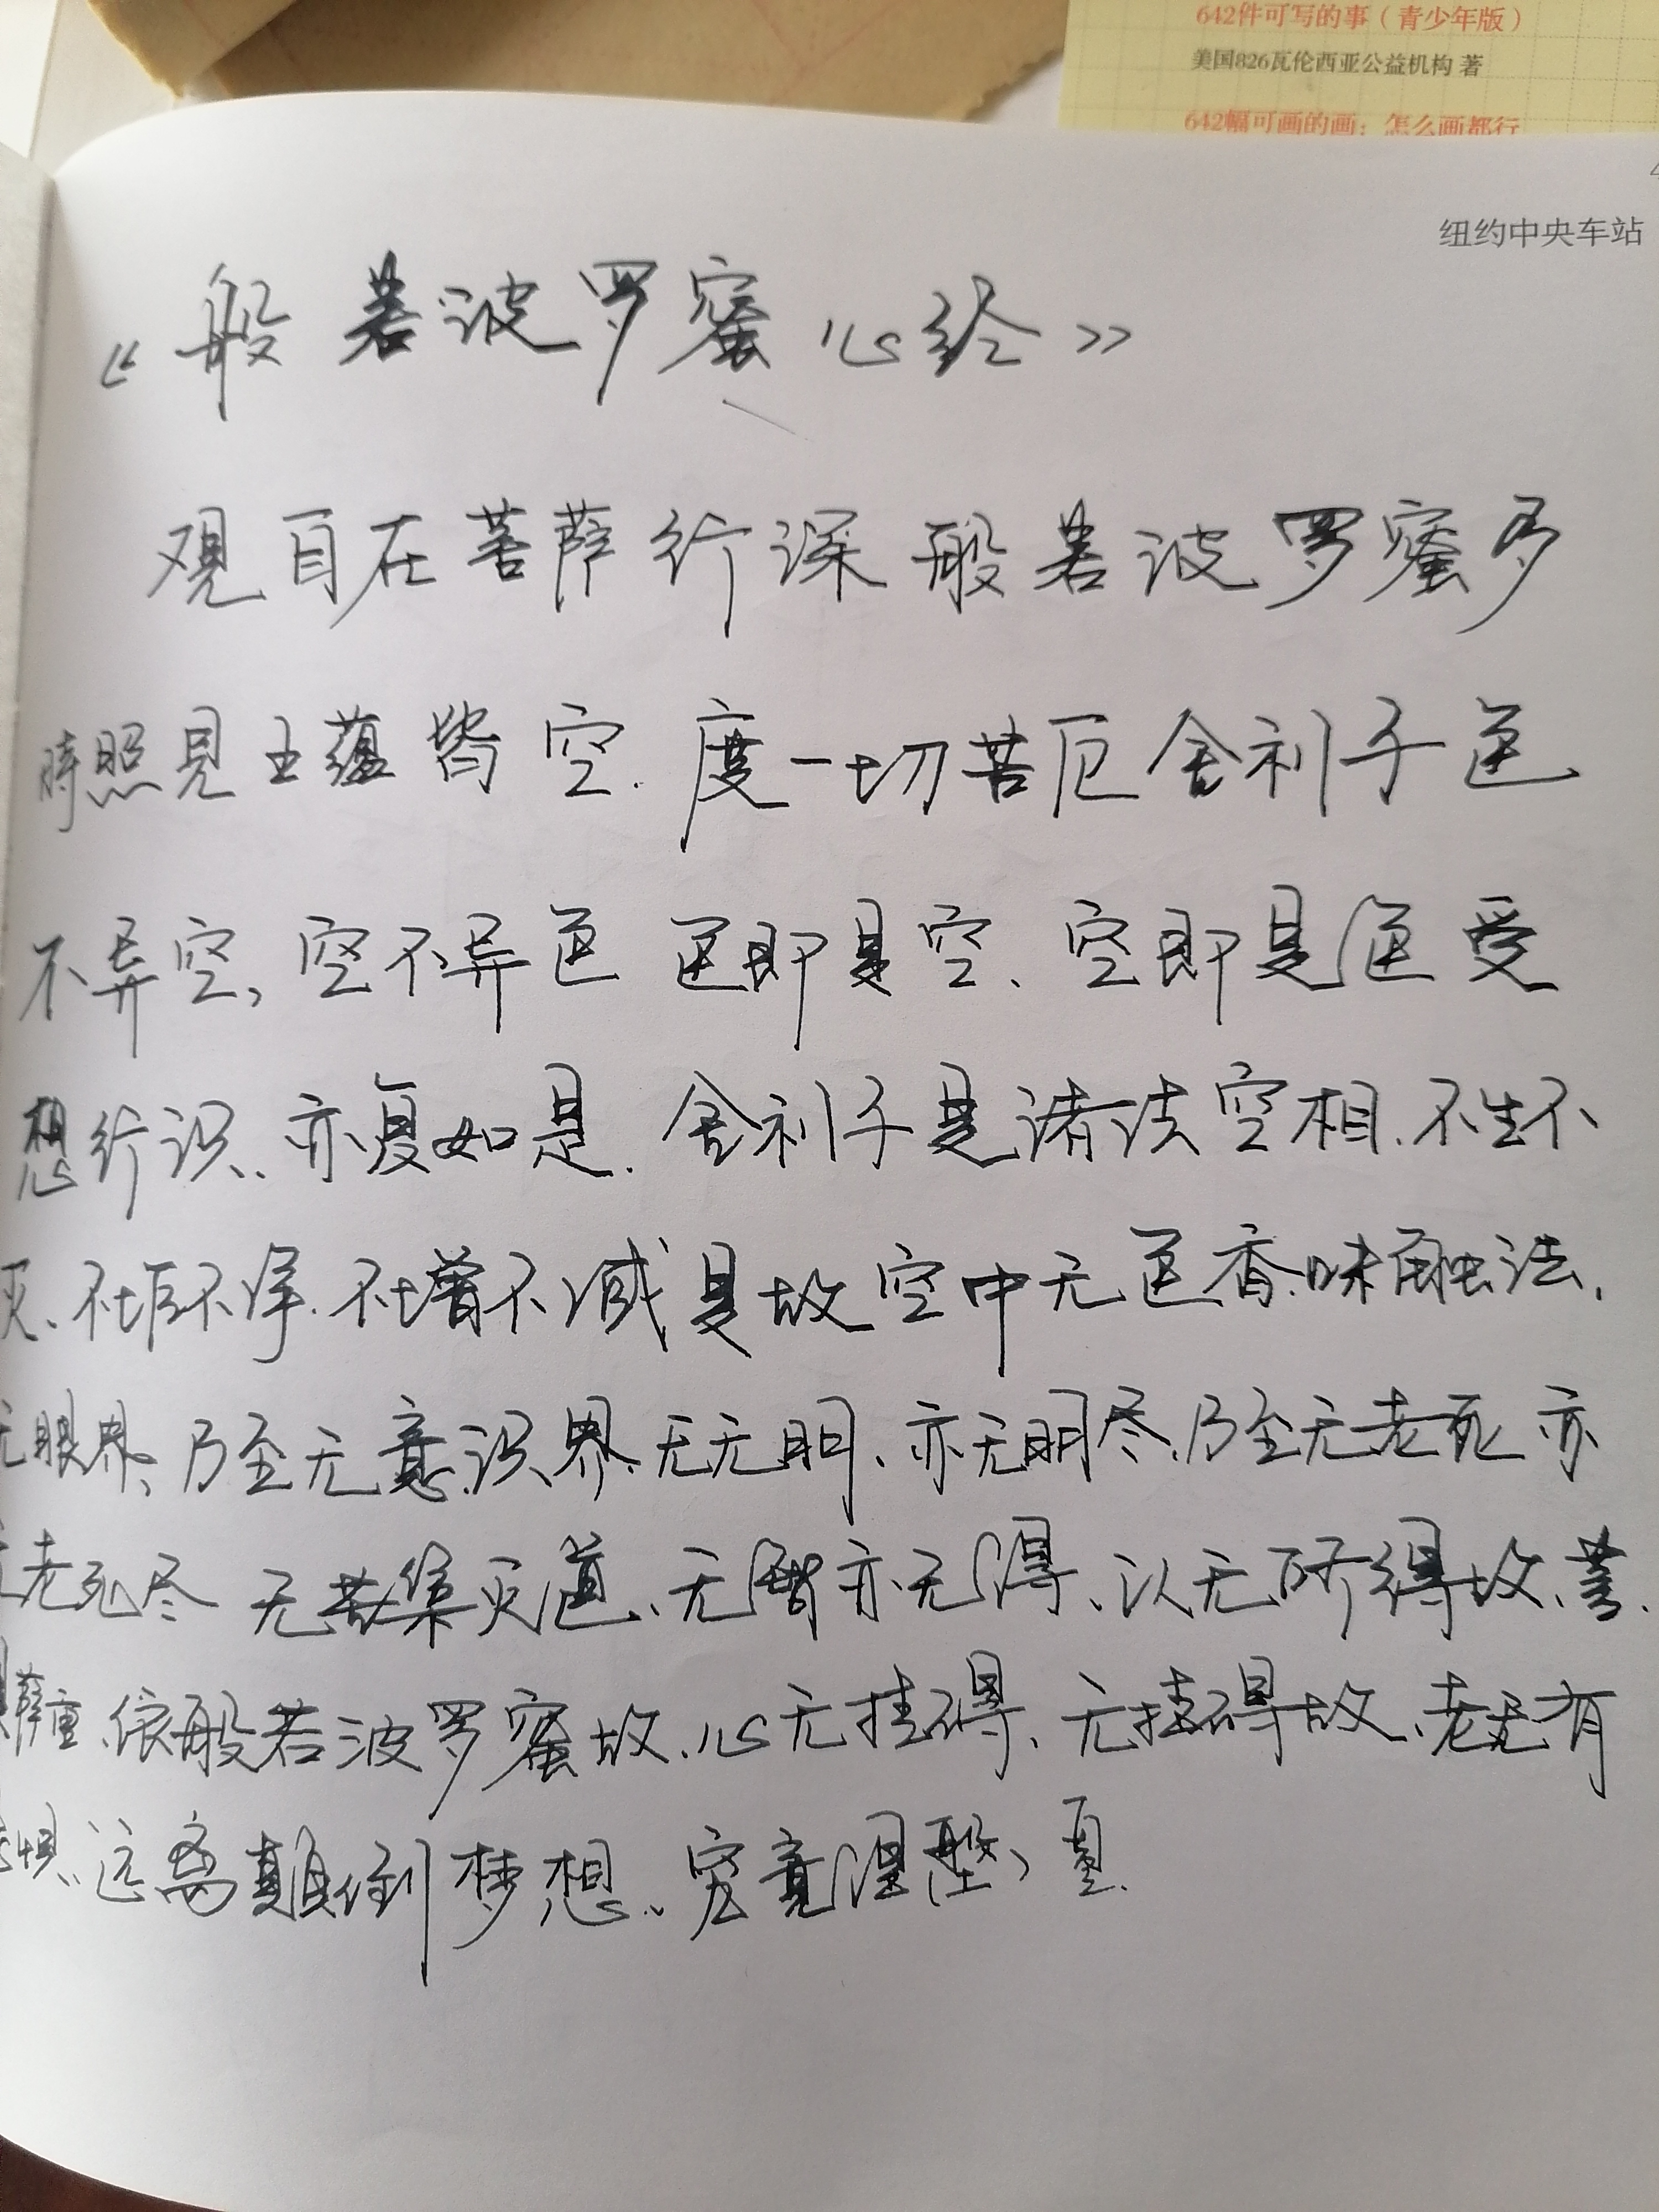 642件可写的事（青少年版）
美国826瓦伦西亚公益机构 著
642幅可画的画：怎么画都行
纽约中央车站
《般若波罗蜜心经》
观自在菩萨行深般若波罗蜜多
時照見五蕴皆空.度一切苦厄舍利子色
不异空,空不异色 色即是空、空即是色受
想行识、亦复如是.舍利子是诸法空相.不生不
灭、不垢不净.不增不减是故空中无色香.味触法,
无眼界、乃至无意识界、无无明、亦无明尽.乃至无老死亦
老死尽 无苦集灭道、无智亦无得、以无所得故、菩.
萨重.依般若波罗蜜故.心无挂碍、无挂碍故、老无有
惧、远离颠倒梦想、究竟涅槃,夏.